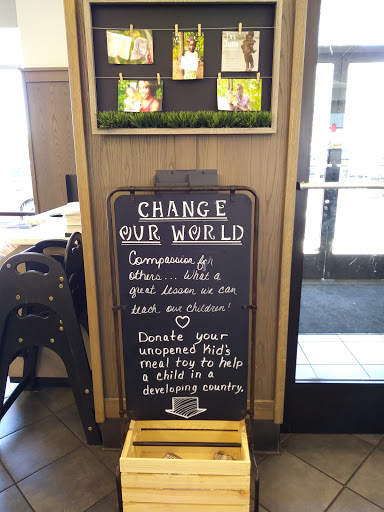 CHANGE
OUR WORLD
Compassion for
others... What a
great lesson we can
teach our children!
Donate your
unopened Kid's
meal toy to help
a child in a
developing country.